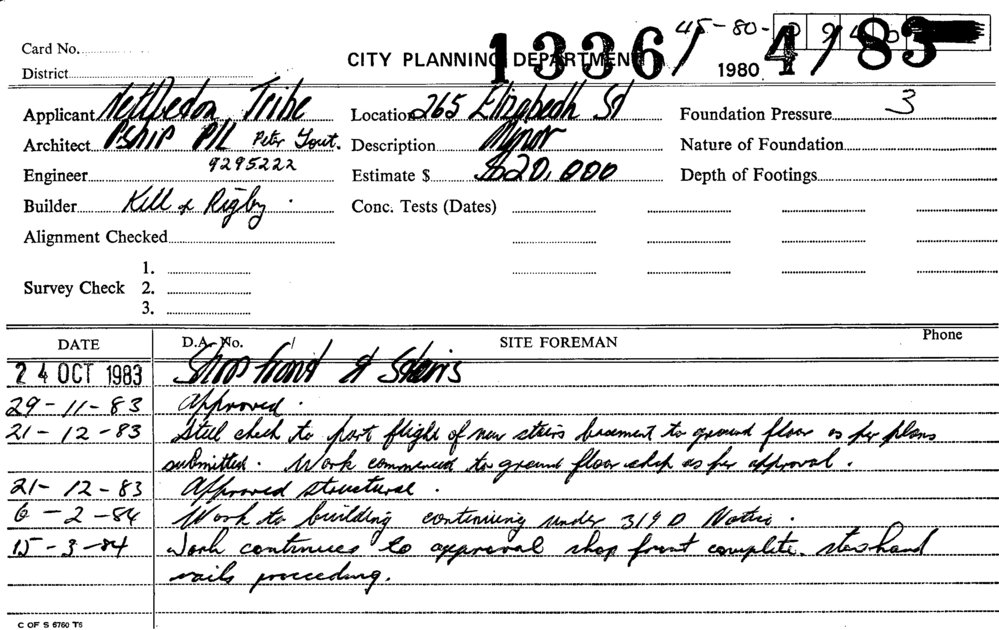 45-80-0940
Card No.
CITY PLANNING DEPARTMENT
13361/4/83
1980
District
Applicant Nettleton Tribe Location 265 Elizabeth St Foundation Pressure 3
Architect P'Ship P/L Peter Description Minor Nature of Foundation
9295222
Engineer Estimate $ $20,000 Depth of Footings
Builder Kell & Rigby. Conc. Tests (Dates)
Alignment Checked
1.
Survey Check 2.
3.
DATE D.A. No. / SITE FOREMAN Phone
24 OCT 1983 Shop front & Stairs
29-11-83 Approved.
21-12-83 Steel check to part flight of new stairs basement to ground floor as per plans
submitted. Work commenced to ground floor shop as per approval.
21-12-83 Approved structural.
6-2-84 Work to building continuing under 319 D Notice.
15-3-84 Work continues to approval shop front complete. stairs hand
rails proceeding.
C OF S 6760 T6